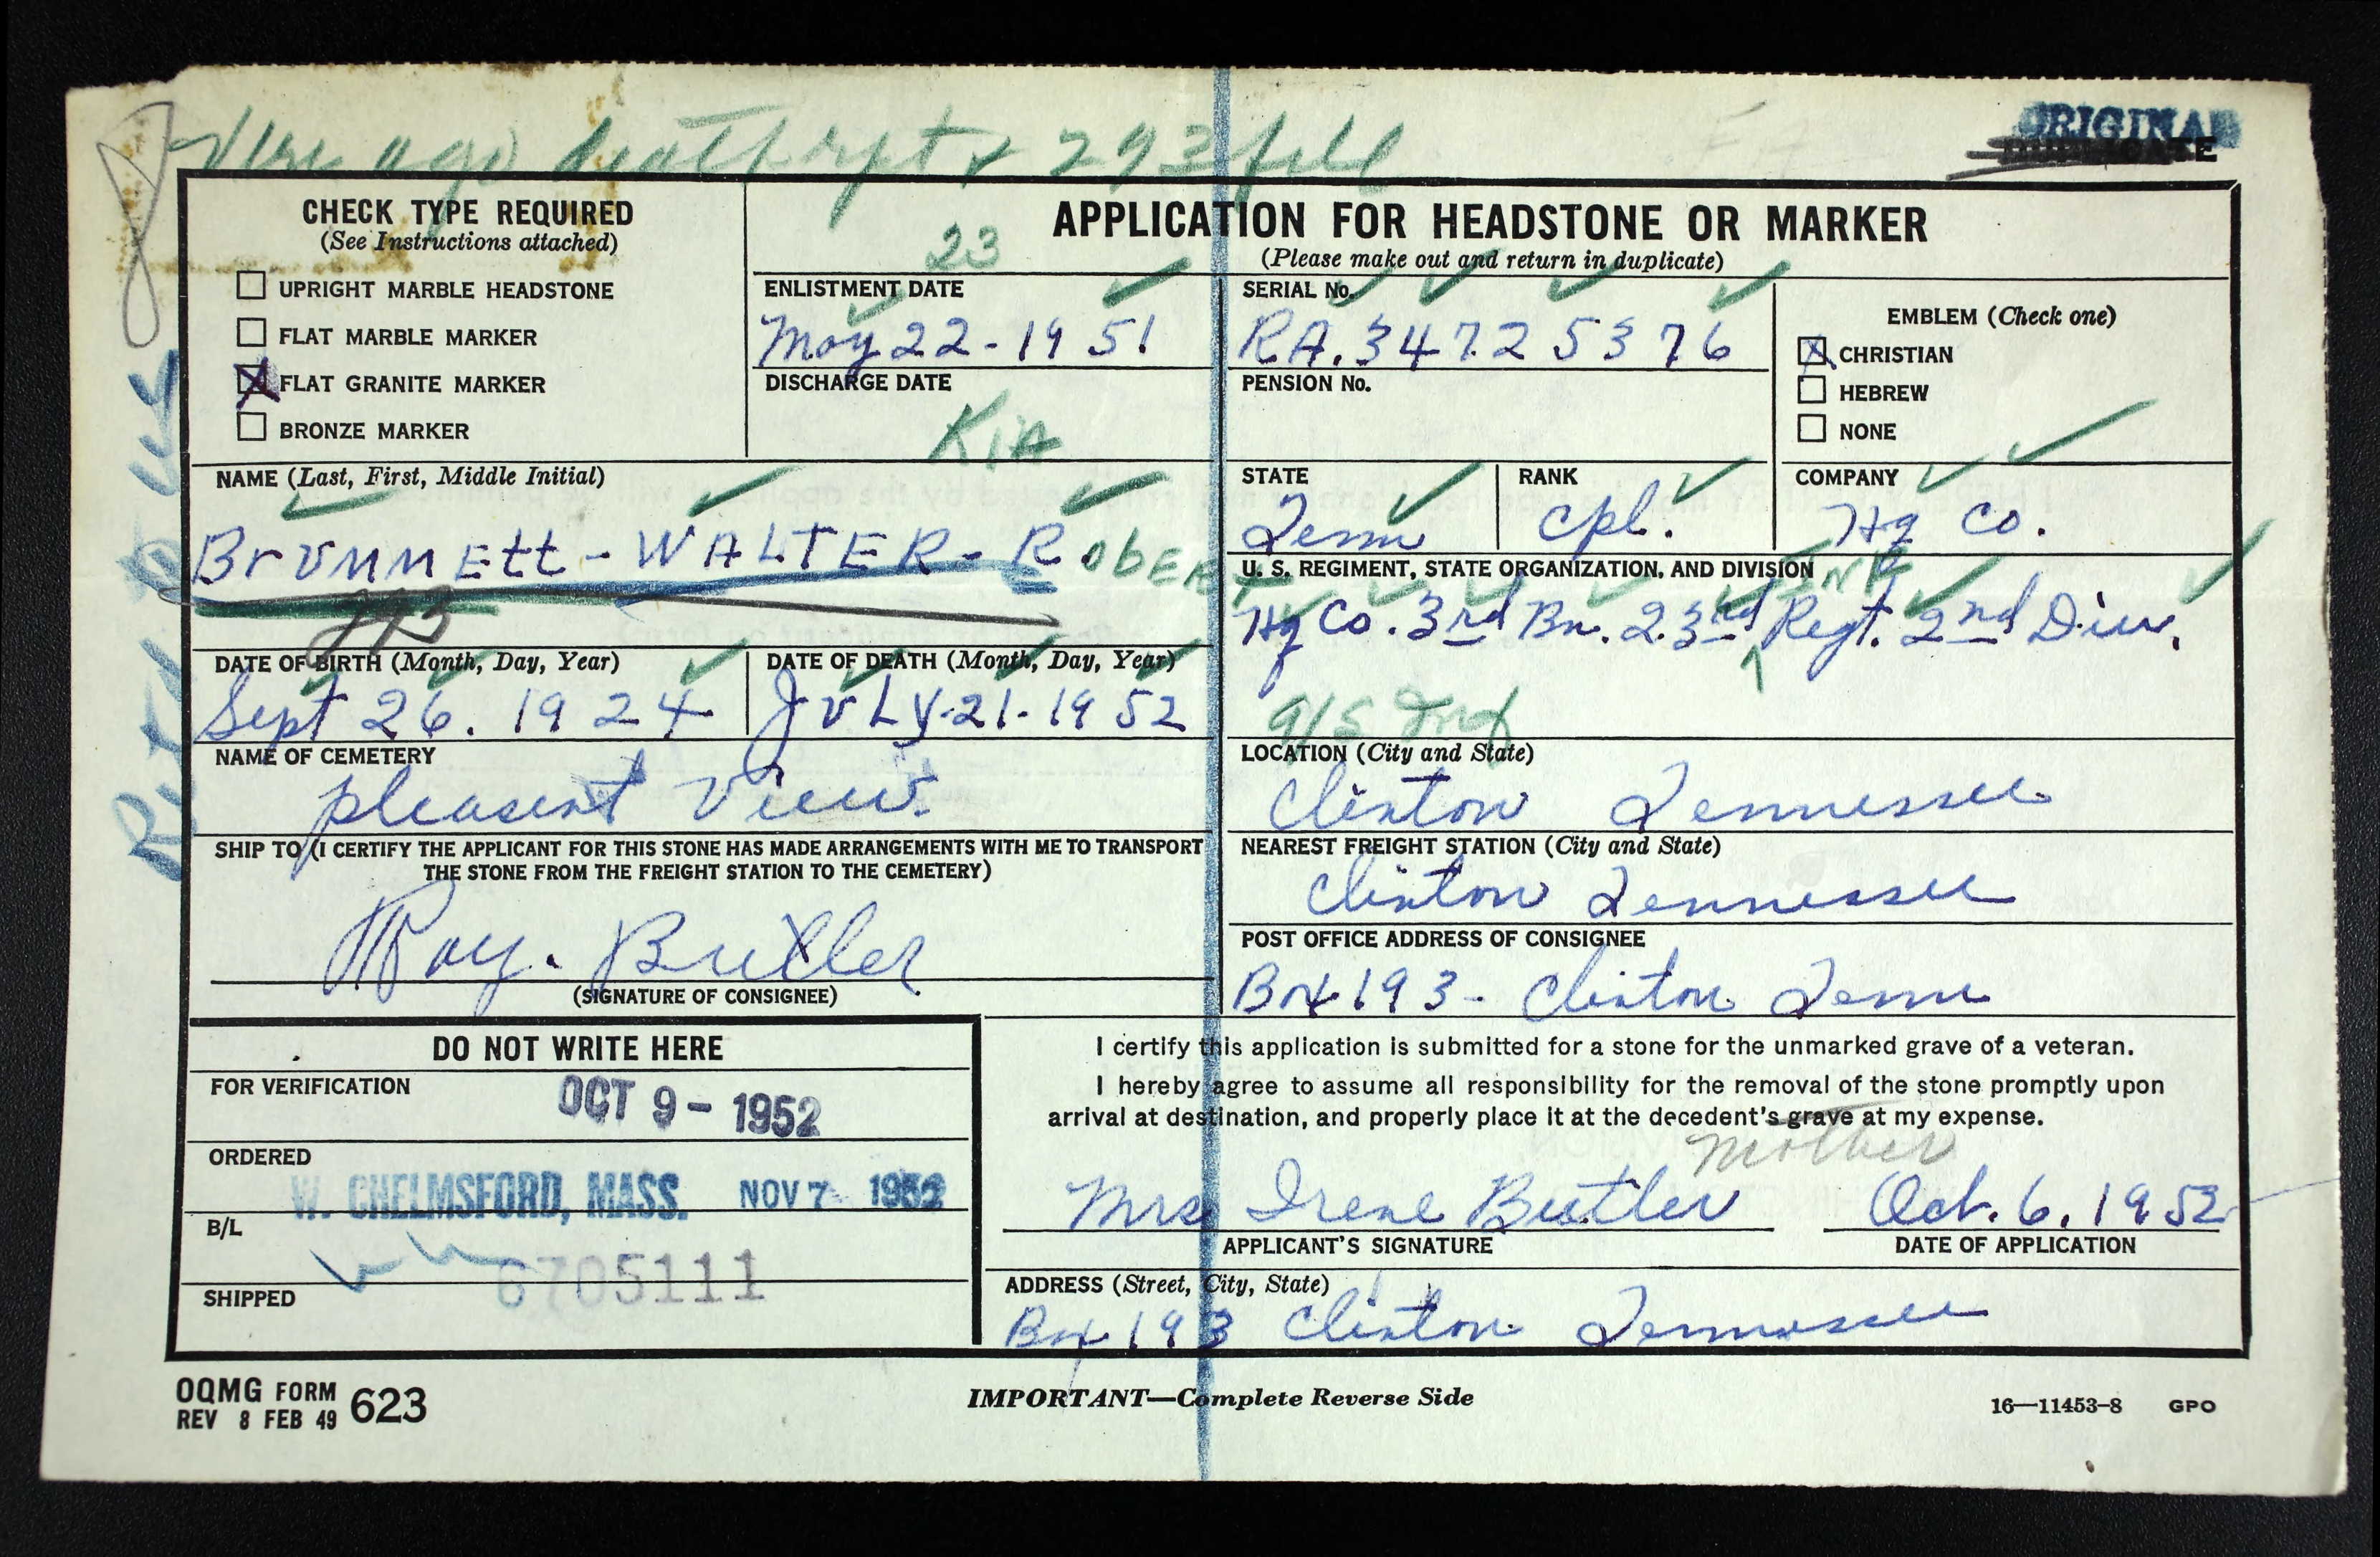 death rpt & 293 file
ORIGINAL
DUPLICATE
CHECK TYPE REQUIRED
(See Instructions attached)
UPRIGHT MARBLE HEADSTONE
FLAT MARBLE MARKER
X FLAT GRANITE MARKER
BRONZE MARKER
APPLICATION FOR HEADSTONE OR MARKER
(Please make out and return in duplicate)
23
ENLISTMENT DATE
May 22-1951
DISCHARGE DATE
KIA
SERIAL No.
RA.34725376
PENSION No.
EMBLEM (Check one)
X CHRISTIAN
HEBREW
NONE
NAME (Last, First, Middle Initial)
BrunnEtt - WALTER - R. obERt
293
STATE
Tenn
RANK
Cpl.
COMPANY
Hq Co.
U. S. REGIMENT, STATE ORGANIZATION, AND DIVISION
Inf
Hq Co. 3rd Bn. 23rd Regt. 2nd Div.
9/5 Inf
DATE OF BIRTH (Month, Day, Year)
Sept 26. 1924
DATE OF DEATH (Month, Day, Year)
JuLy-21-1952
NAME OF CEMETERY
pleasent View.
LOCATION (City and State)
Clinton Tennessee
SHIP TO (I CERTIFY THE APPLICANT FOR THIS STONE HAS MADE ARRANGEMENTS WITH ME TO TRANSPORT
THE STONE FROM THE FREIGHT STATION TO THE CEMETERY)
Roy. Butler
(SIGNATURE OF CONSIGNEE)
NEAREST FREIGHT STATION (City and State)
Clinton Tennessee
POST OFFICE ADDRESS OF CONSIGNEE
Box 193- Clinton Tenn
DO NOT WRITE HERE
FOR VERIFICATION
OCT 9 - 1952
ORDERED
W. CHELMSFORD, MASS. NOV 7 1952
B/L
6705111
SHIPPED
I certify this application is submitted for a stone for the unmarked grave of a veteran.
I hereby agree to assume all responsibility for the removal of the stone promptly upon
arrival at destination, and properly place it at the decedent's grave at my expense.
mother
Mrs Irene Butler
Oct. 6, 1952
APPLICANT'S SIGNATURE
DATE OF APPLICATION
ADDRESS (Street, City, State)
Box 193 Clinton Tennessee
OQMG FORM 623
REV 8 FEB 49
IMPORTANT—Complete Reverse Side
16—11453-8 GPO